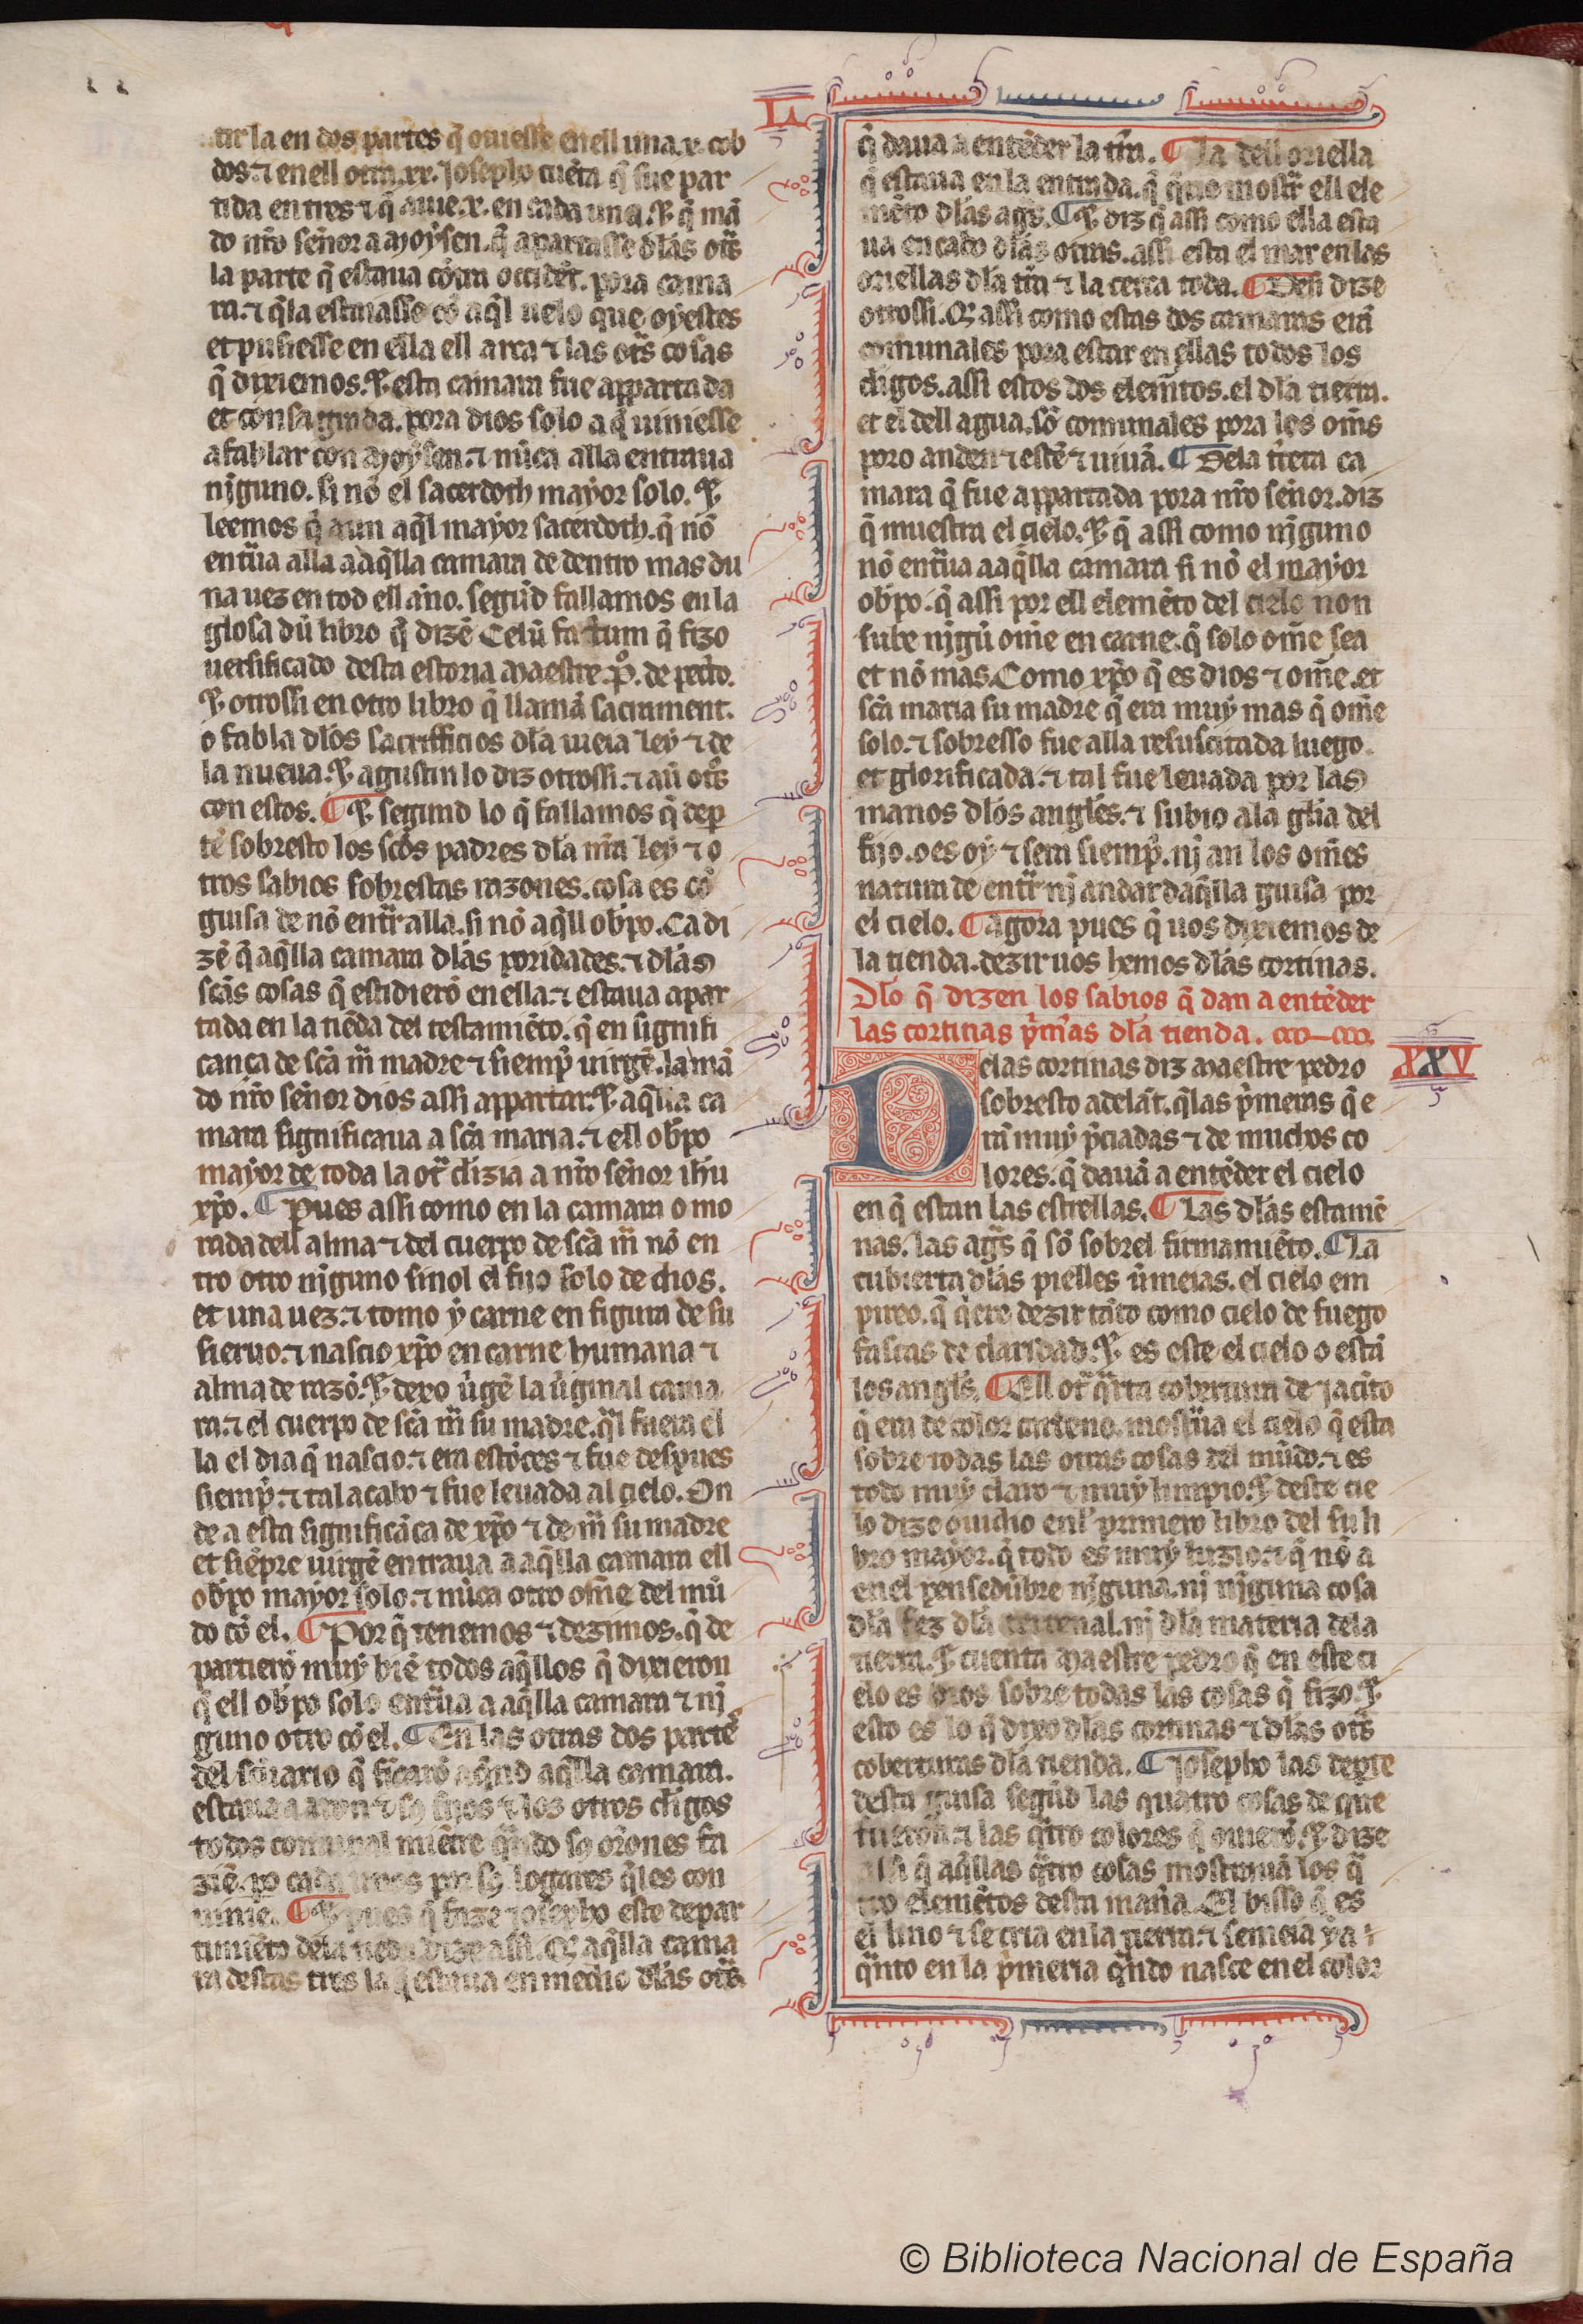 LI
tir la en dos partes q̃ ouiesse enell una .x. cob
dos. ⁊ enell otra .xx. Josepho cuẽta q̃ fue par
tida en tres ⁊ q̃ auie .x. en cada una. ⁊ q̃ mã
do nr̃o señor a moysen. q̃ apartasse dlas otr̃s
la parte q̃ estaua cõtra occidẽt. pora cama
ra. ⁊ q̃la estaiasse cõ aq̃l uelo que oyestes
et pusiesse en ella ell arca ⁊ las otr̃s cosas
q̃ dixiemos. ⁊ esta camara fue appartada
et consagrada. pora dios solo a q̃ uiniesse
a fablar con moysen. ⁊ nũca alla entraua
nj̃guno. si nõ el sacerdoth mayor solo. ⁊
leemos q̃ aun aq̃l mayor sacerdoth. q̃ nõ
entr̃ua alla a aq̃lla camara de dentro mas du
na uez en tod ell año. segũd fallamos en la
glosa dũ libro q̃ dizẽ Celũ factum q̃ fizo
uersificado desta estoria maestre .p̊. de pecto.
⁊ otrossi en otro libro q̃ llamã sacrament.
o fabla dlos sacrifficios dla uieia ley ⁊ de
la nueua. ⁊ agustin lo diz otrossi. ⁊ aũ otr̃s
con estos. ¶ ⁊ segund lo q̃ fallamos q̃ dep̱
tẽ sobresto los sc̃os padres dla nr̃a ley ⁊ o
tros sabios sobrestas razones. cosa es cõ
guisa de nõ entr̃r alla. si nõ aq̃ll ob̃po. Ca di
zẽ q̃ aq̃lla camara dlas poridades. ⁊ dlas
sc̃as cosas q̃ estidierõ en ella. ⁊ estaua apar
tada en la tiẽda del testamiẽto. q̃ en signifi
cança de sc̃a mª madre ⁊ siemp̃ uirgẽ. la mã
do nr̃o señor dios assi appartar. ⁊ aq̃lla ca
mara significaua a sc̃a maria. ⁊ ell ob̃po
mayor de toda la otr̃ clizia a nr̃o señor ih̃u
xp̃o. ¶ Pues assi como en la camara o mo
rada dell alma ⁊ del cuerpo de sc̃a mª nõ en
tro otro nj̃guno sinol el fijo solo de dios.
et una uez. ⁊ tomo y carne en figura de su
sieruo. ⁊ nascio xp̃o en carne humana ⁊
alma de razõ. ⁊ dexo ũgẽ la ũginal cama
ra. ⁊ el cuerpo de sc̃a mª su madre. q̃l fuera el
la el dia q̃ nascio. ⁊ era estõces ⁊ fue despues
siemp̃. ⁊ tal acabo ⁊ fue leuada al cielo. On
de a esta significãça de xp̃o ⁊ de mª su madre
et siẽpre uirgẽ entraua a aq̃lla camara ell
ob̃po mayor solo. ⁊ nũca otro om̃e del mũ
do cõ el. ¶ Por q̃ tenemos ⁊ dezimos. q̃ de
partierõ muy biẽ todos aq̃llos q̃ dixieron
q̃ ell ob̃po solo entr̃ua a aq̃lla camara ⁊ nj̃
guno otro cõ el. ¶ En las otras dos partẽ
del sc̃ũario q̃ ficarõ aq̃nd aq̃lla camara.
estaua aaron ⁊ sꝯ fijos ⁊ los otros cl̃igos
todos comunal miẽtre q̃ndo sꝯ or̃ones fa
ziẽ. po cada unos por sꝯ logares q̃les con
uinie. ¶ ⁊ pues q̃ faze josepho este depar
timiẽto dela tiẽda dize assi. Q̃ aq̃lla cama
ra destas tres la q̃ estaua en medio dlas otr̃s
q̃ daua a entẽder la tr̃a. ¶ La dell oriella
q̃ estaua en la entrada. q̃ q̃rie mostr̃r ell ele
mẽto dlas ag̃s. ¶ ⁊ diz q̃ assi como ella esta
ua en cabo dlas otras. assi esta el mar en las
oriellas dla tr̃a ⁊ la cerca toda. ¶ Desi dize
otrossi. Q̃ assi como estas dos camaras erã
comunales pora estar en ellas todos los
cl̃igos. assi estos dos elem̃tos. el dla tierra.
et el dell agua. sõ comunales pora los om̃s
poro anden ⁊ estẽ ⁊ uiuã. ¶ Dela tr̃cera ca
mara q̃ fue appartada pora nr̃o señor. diz
q̃ muestra el cielo. ⁊ q̃ assi como nj̃guno
nõ entr̃ua a aq̃lla camara si nõ el mayor
ob̃po. q̃ assi por ell elemẽto del cielo non
sube nj̃gũ om̃e en carne. q̃ solo om̃e sea
et nõ mas. Como xp̃o q̃ es dios ⁊ om̃e. et
sc̃a maria su madre q̃ era muy mas q̃ om̃e
solo. ⁊ sobresso fue alla resuscitada luego
et glorificada. ⁊ tal fue leuada por las
manos dlos angl̃es. ⁊ subio ala gl̃ia del
fijo. o es oy ⁊ sera siemp̃. nj an los om̃es
natura de entr̃r nj andar daq̃lla guisa por
el cielo. ¶ Agora pues q̃ uos dixiemos de
la tienda. dezir uos hemos dlas cortinas.
Dlo q̃ dizen los sabios q̃ dan a entẽder
las cortinas p̃m̃as dla tienda.
XXV
Delas cortinas diz maestre pedro
sobresto adelãt. q̃las p̃meras q̃ e
rã muy p̃ciadas ⁊ de muchos co
lores. q̃ dauã a entẽder el cielo
en q̃ estan las estrellas. ¶ Las dlas estamẽ
nas. las ag̃s q̃ sõ sobrel firmamiẽto. ¶ La
cubierta dlas pielles ũmeias. el cielo em
pireo. q̃ q̃ere dezir tãto como cielo de fuego
fascas de claridad. ⁊ es este el cielo o estã
los angl̃s. ¶ Ell otr̃ q̃rta cobertura de jacĩto
q̃ era de color cardeno. mostr̃ua el cielo q̃ esta
sobre todas las otras cosas del mũdo. ⁊ es
todo muy claro ⁊ muy limpio. ⁊ deste cie
lo dize ouidio enl primero libro del su li
bro mayor. q̃ todo es muy luzio. ⁊ q̃ nõ a
en el pensedũbre nj̃guna. nj nj̃guna cosa
dla fez dla terrenal. nj dla materia dela
tierra. ⁊ cuenta maestre pedro q̃ en este ci
elo es dios sobre todas las cosas q̃ fizo. ⁊
esto es lo q̃ dixo dlas cortinas ⁊ dlas otr̃s
coberturas dla tienda. ¶ Josepho las dep̱te
desta guisa segũd las quatro cosas de que
fueron. ⁊ las q̃tro colores q̃ ouierõ. ⁊ dize
assi q̃ aq̃llas q̃tro cosas mostrauã los q̃
tro elemẽtos desta mañа. El bisso q̃ es
el lino ⁊ se cria en la tierra. ⁊ semeia ya
q̃nto en la p̃meria q̃ndo nasce en el color
© Biblioteca Nacional de España